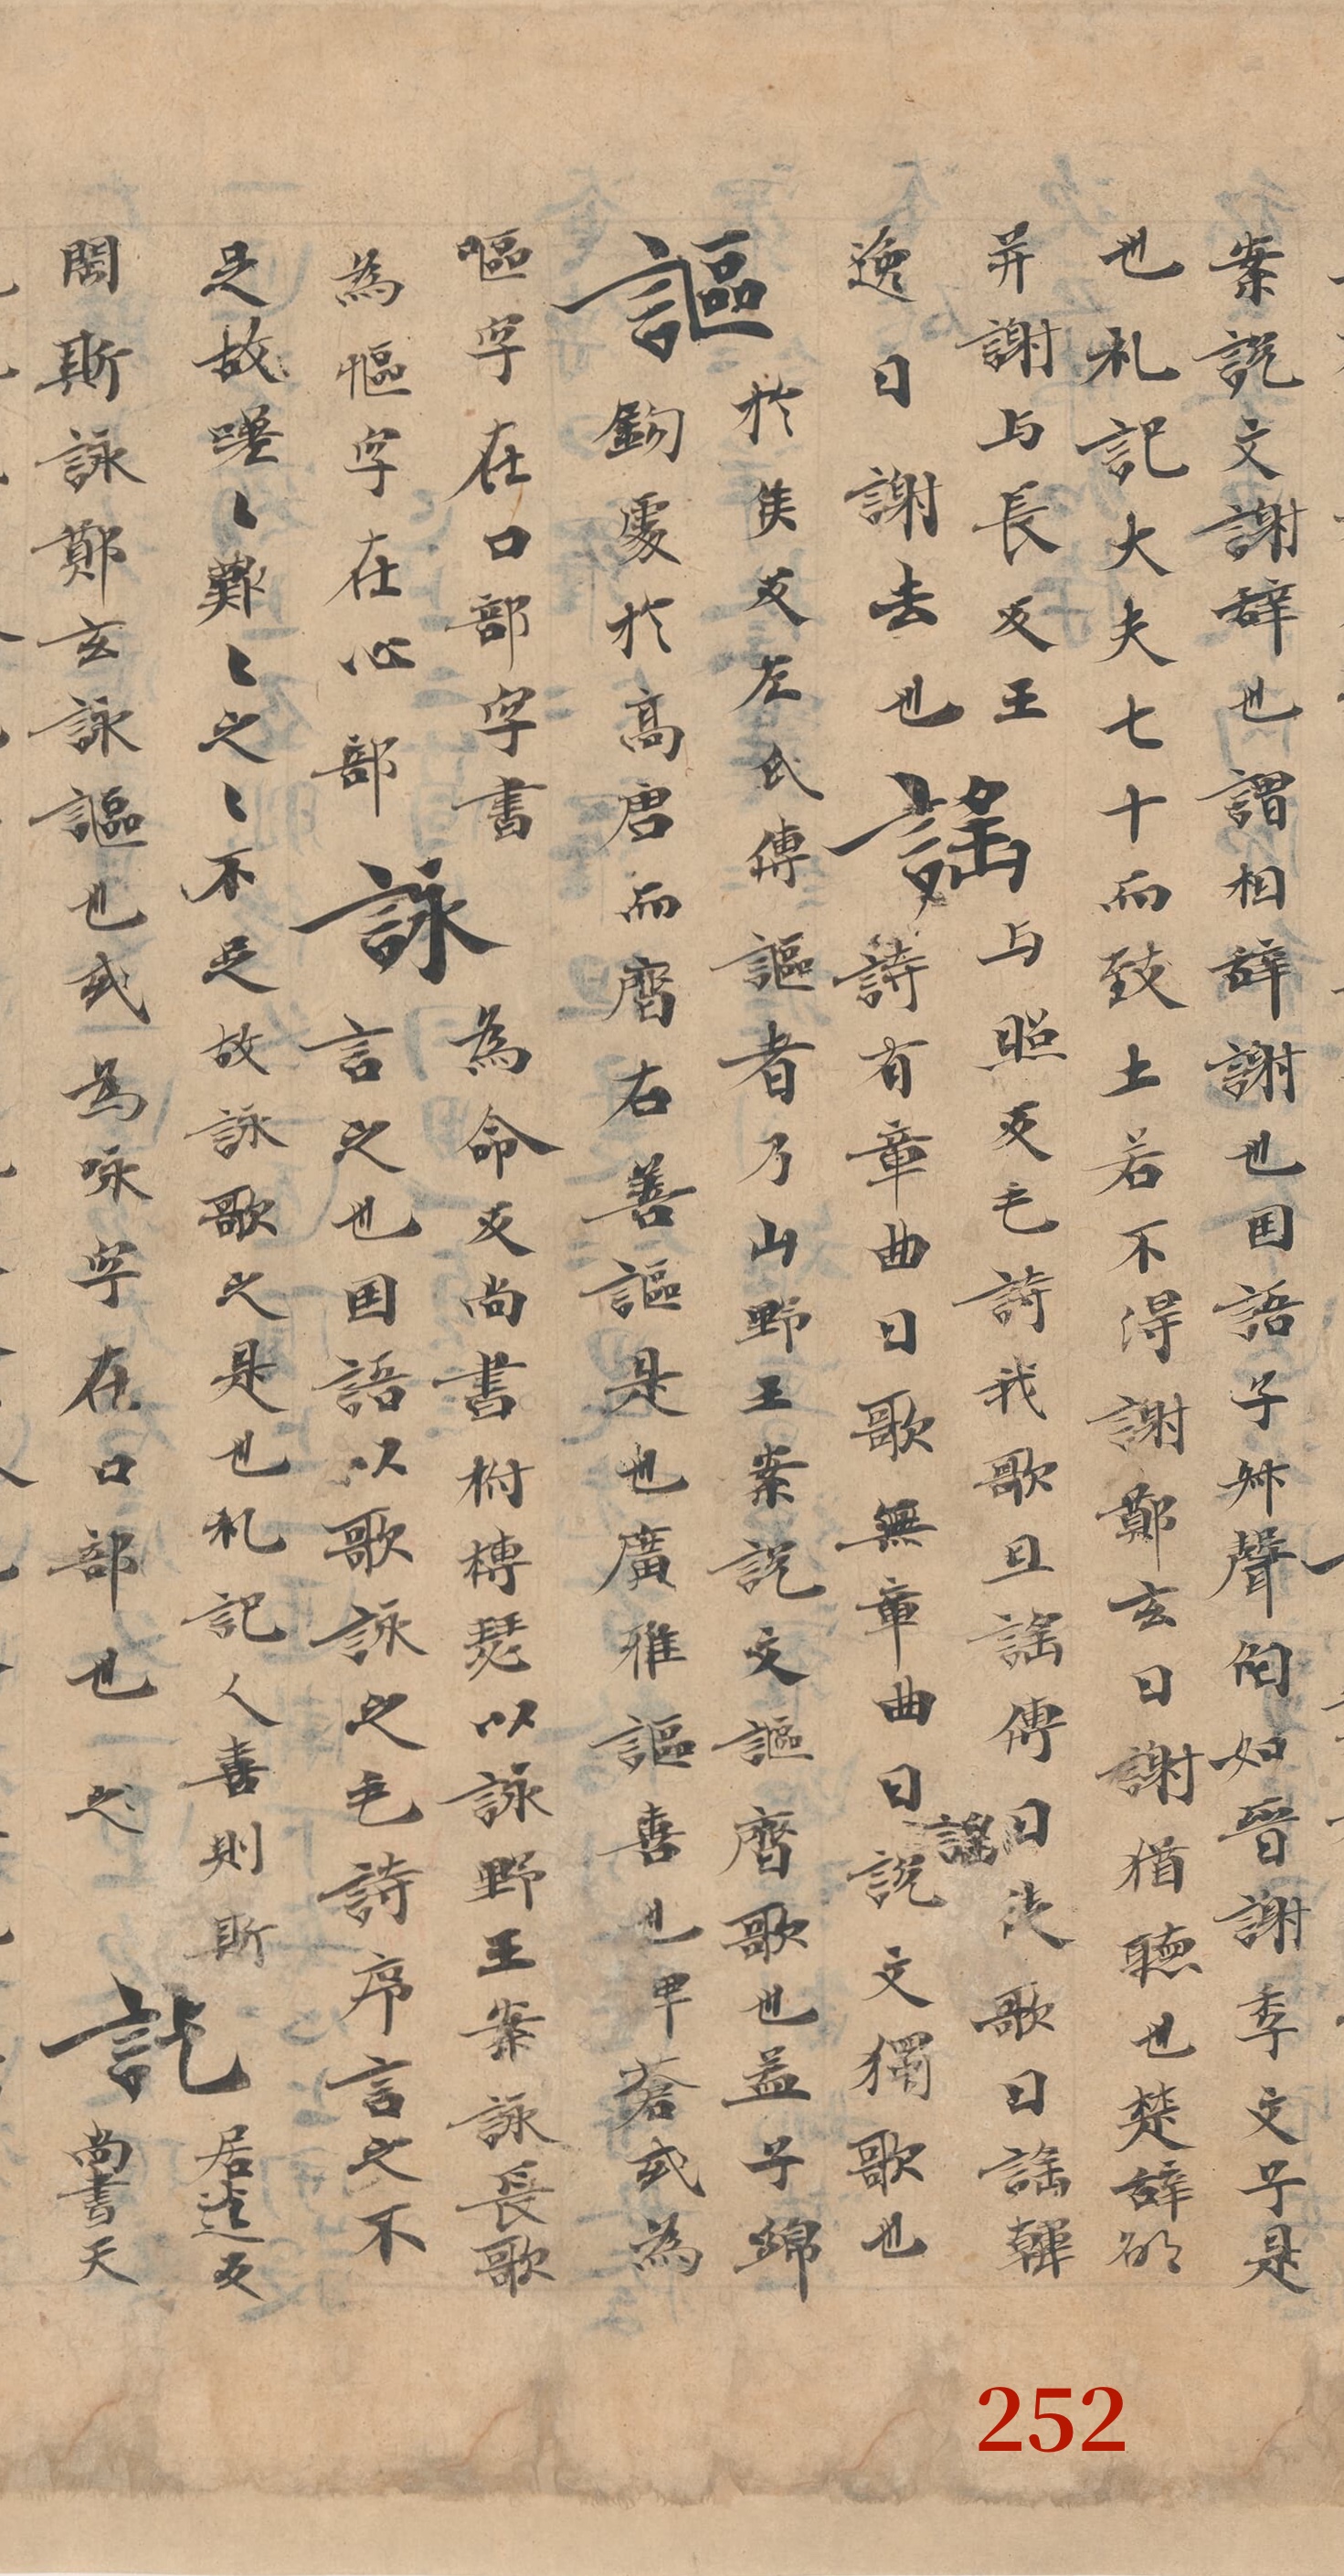 案説文謝辞也謂相辞謝也国語子舛聲伯如晋謝季文子是
也礼記大夫七十而致士若不得謝鄭玄曰謝猶聴也楚辞
并謝与長友王
逸曰謝去也
謡
与照反毛詩我歌且謡傳曰徒歌曰謡韓
詩有章曲曰歌無章曲曰謡説文獨歌也
謳
於侯反左氏傳謳者乃山野王案説文謳齊歌也益子綿
駒處於高唐而齊右善謳是也廣雅謳喜也甲蒼或為
嘔字在口部字書
為慪字在心部
詠
為命反尚書拊搏瑟以詠野王案詠長歌
言之也国語以歌詠之毛詩序言之不
足故嘆〻難〻之〻不足故詠歌之是也礼記人喜則斯
斯詠鄭玄詠謳也或為咏字在口部也一之
訖
居迄反
尚書天
252